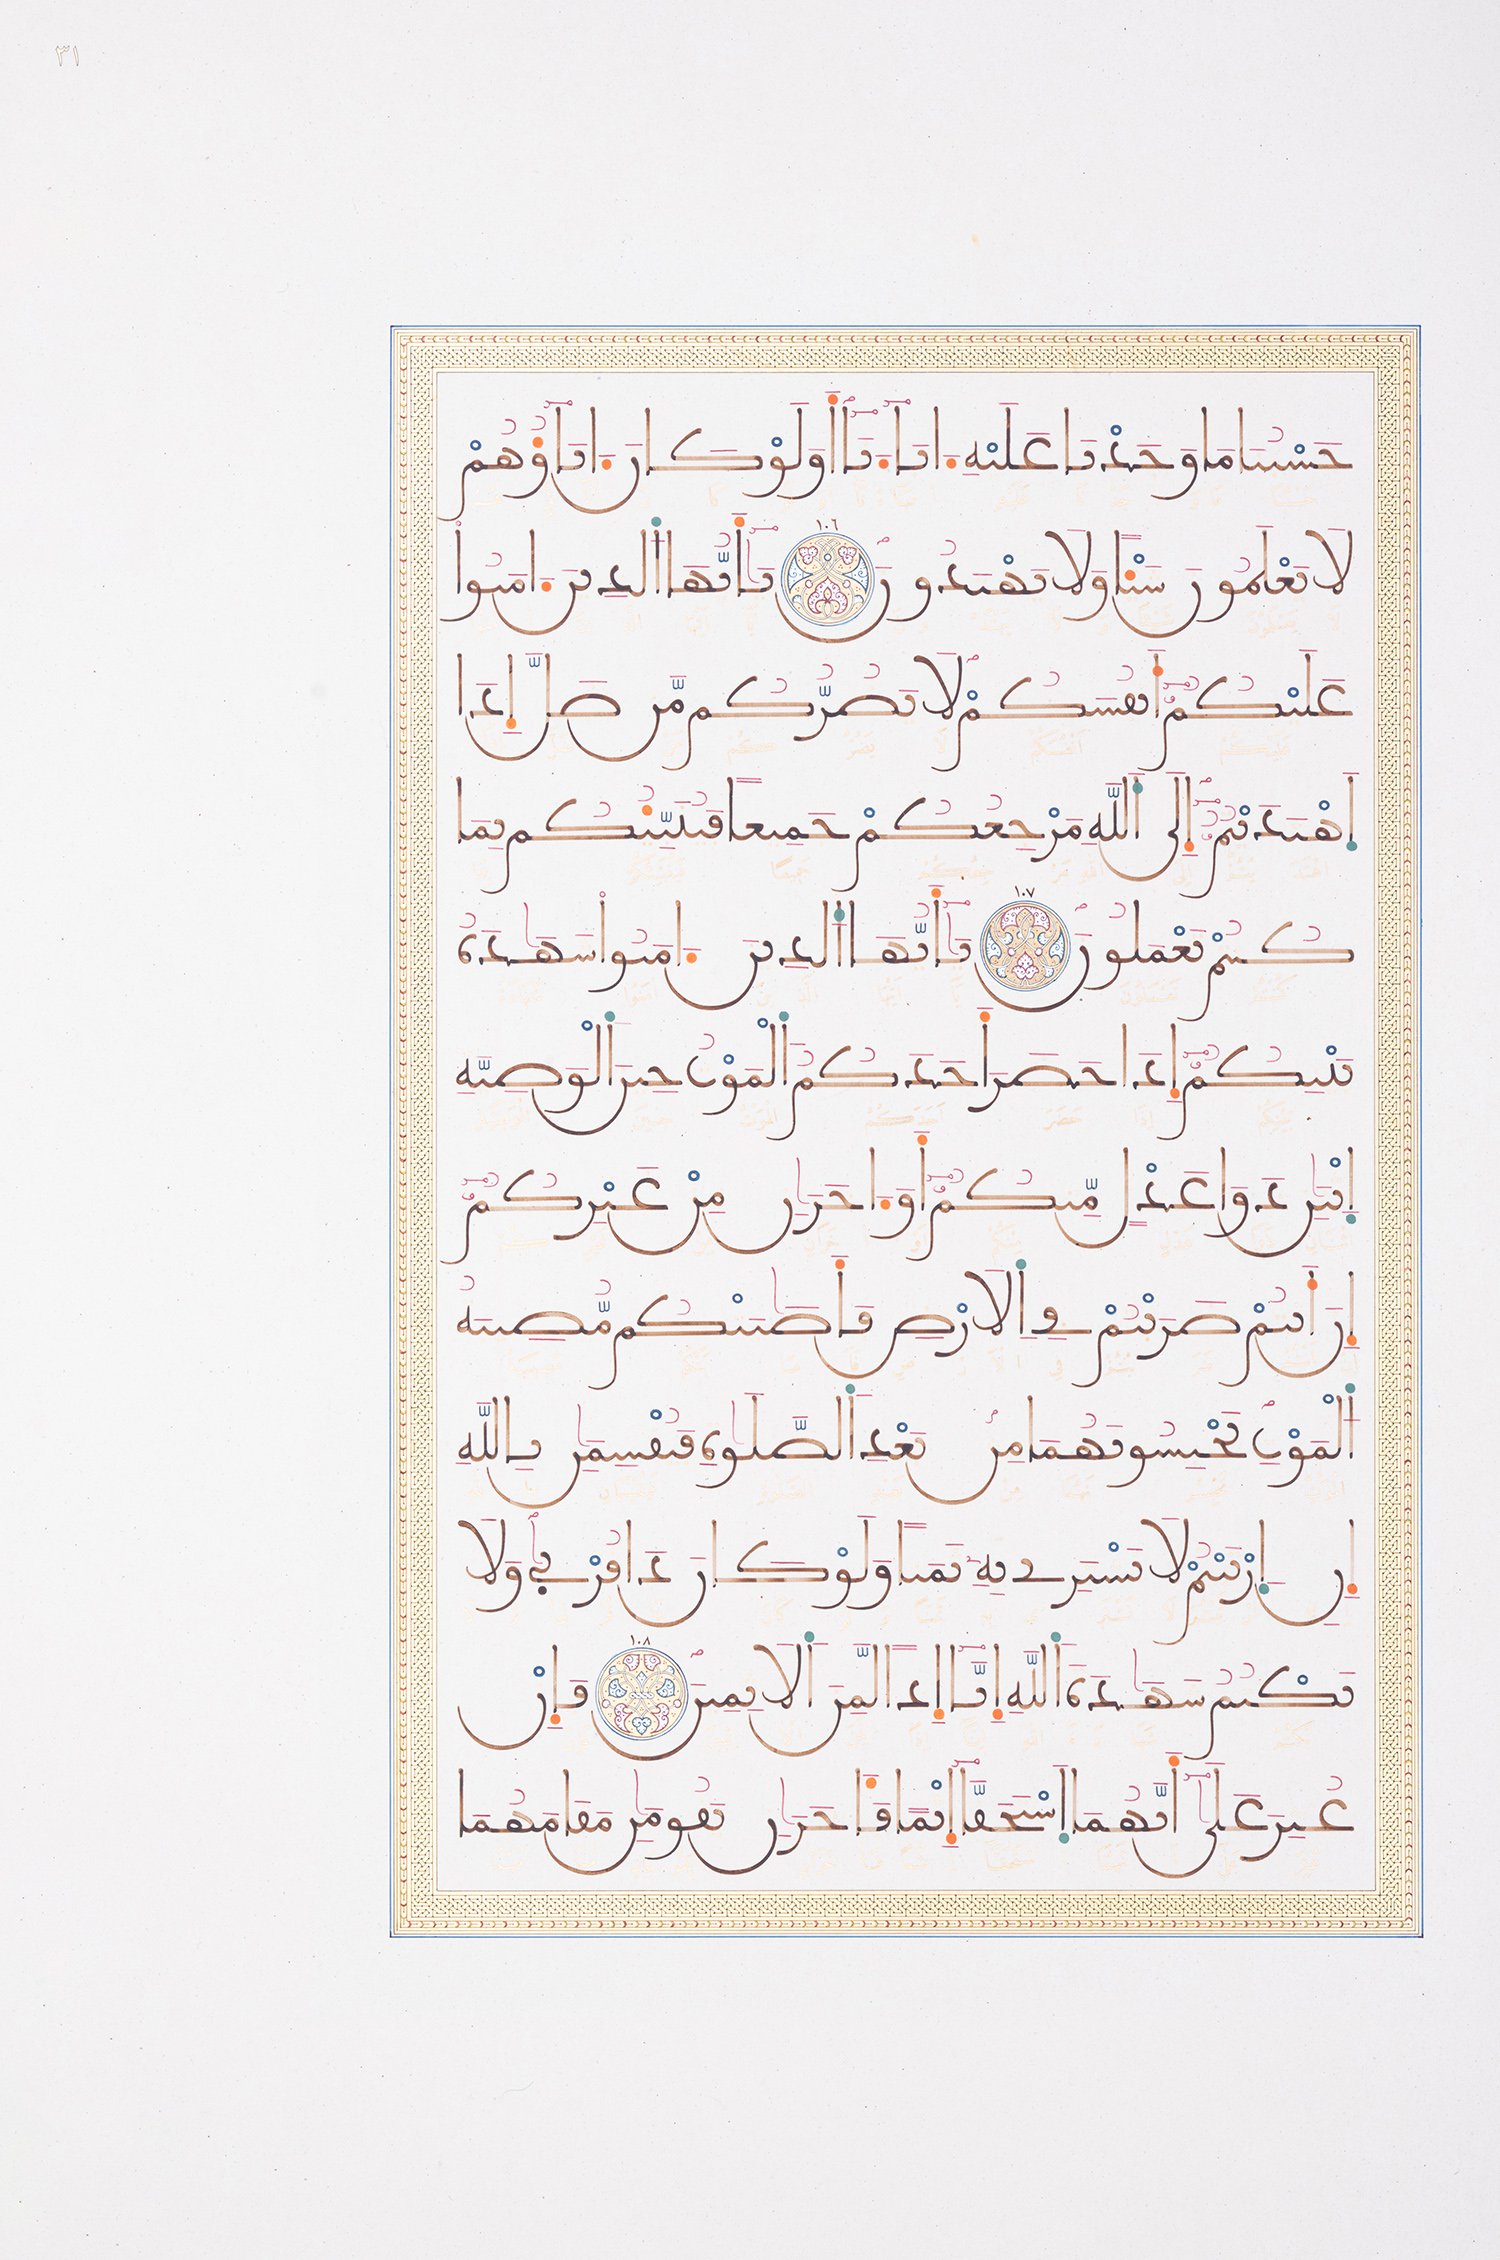 ٣١
حَسْبُنَا مَا وَجَدْنَا عَلَيْهِ ءَابَآءَنَآ أَوَلَوْ كَانَ ءَابَآؤُهُمْ
لَا يَعْلَمُونَ شَيْـًٔا وَلَا يَهْتَدُونَ ١٠٦ يَٰٓأَيُّهَا ٱلَّذِينَ ءَامَنُوا۟
عَلَيْكُمُۥٓ أَنفُسَكُمْ لَا يَضُرُّكُم مَّن ضَلَّ إِذَا
ٱهْتَدَيْتُمُۥٓ إِلَى ٱللَّهِ مَرْجِعُكُمْ جَمِيعًا فَيُنَبِّئُكُم بِمَا
كُنتُمْ تَعْمَلُونَ ١٠٧ يَٰٓأَيُّهَا ٱلَّذِينَ ءَامَنُوا۟ شَهَٰدَةُ
بَيْنِكُمُۥٓ إِذَا حَضَرَ أَحَدَكُمُ ٱلْمَوْتُ حِينَ ٱلْوَصِيَّةِ
ٱثْنَٰنِ ذَوَا عَدْلٍ مِّنكُمُۥٓ أَوَ ءَاخَرَٰنِ مِنْ غَيْرِكُمُۥٓ
إِنَ أَنتُمْ ضَرَبْتُمْ فِي ٱلَارْضِ فَأَصَٰبَتْكُم مُّصِيبَةُ
ٱلْمَوْتِ تَحْبِسُونَهُمَا مِنۢ بَعْدِ ٱلصَّلَوٰةِ فَيُقْسِمَٰنِ بِٱللَّهِ
إِنِ ٱرْتَبْتُمْ لَا نَشْتَرِي بِهِۦ ثَمَنًا وَلَوْ كَانَ ذَا قُرْبَىٰ وَلَا
نَكْتُمُ شَهَٰدَةَ ٱللَّهِ إِنَّآ إِذًا لَّمِنَ ٱلَاثِمِينَ ١٠٨ فَإِنْ
عُثِرَ عَلَىٰٓ أَنَّهُمَا ٱسْتَحَقَّآ إِثْمًا فَـَٔاخَرَٰنِ يَقُومَٰنِ مَقَامَهُمَا